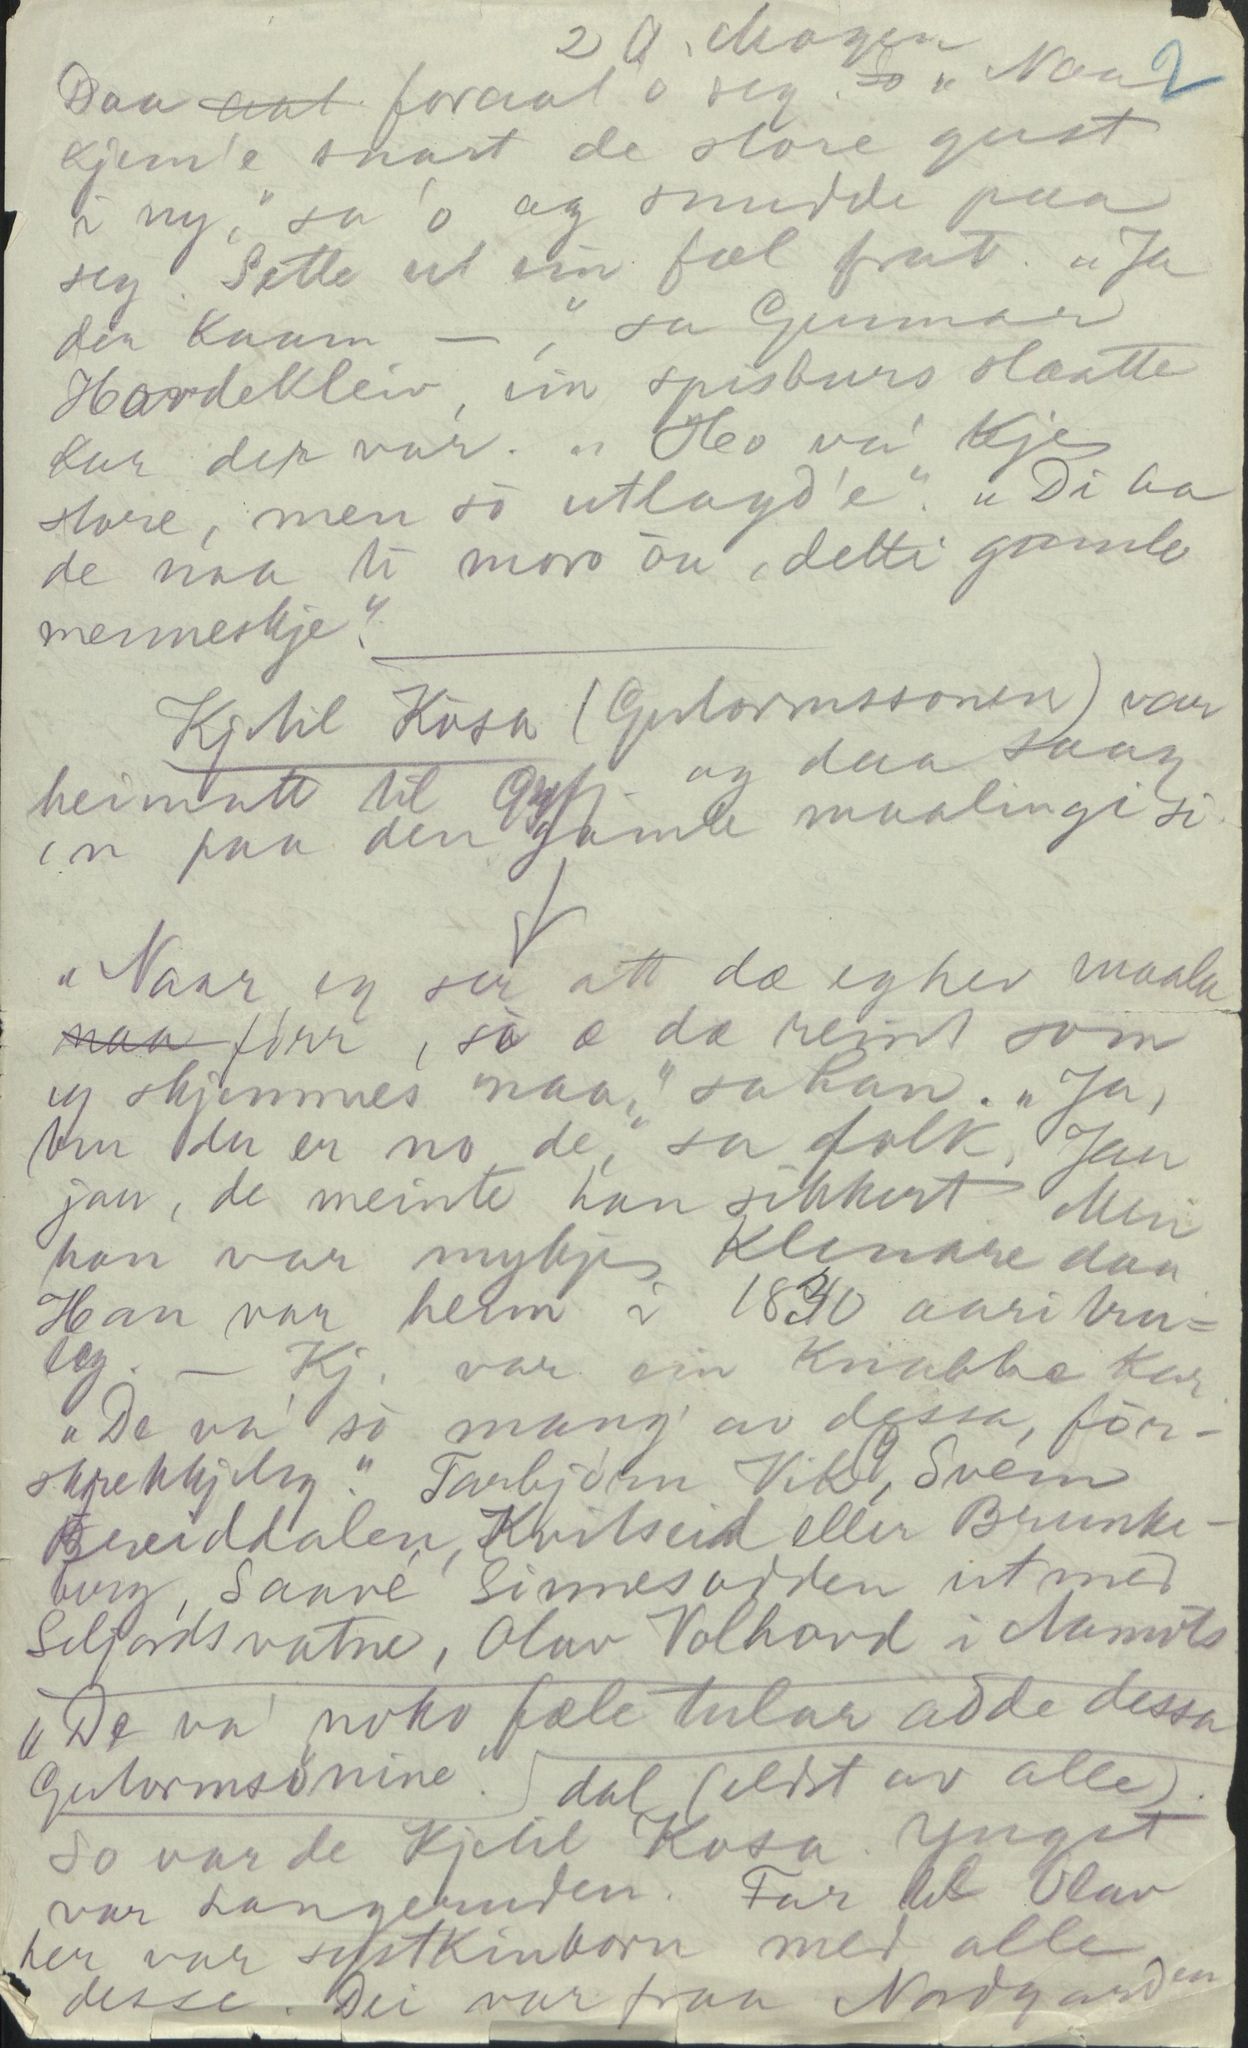 2 A. Mogen
2
Daa aat foraat o seg. So „Naa
kjem'e snart de store gust
i ny," sa 'o og snudde paa
seg. Sette ut ein fæl frat. „Ja
den kaam —," sa Gunnar
Hardekleiv, ein spisburs slaatte
kar der var. „Ho va' kje
store, men så utlagd'e". „Di ha
de naa ti moro òu, detti gamle
menneskje".
Kjetil Kosa (Gutormssonen) var
heimatt til og daa saag
en paa den gamle maalingi si.
„Naar eg ser att dæ eg hev maala
naa fårr, så æ dæ reint som
eg skjemmes naa," sa han. „Ja,
bru du er no de," sa folk. Jau
jau, de meinte han sikkert Men
han var mykje klenare daa
Han var heim i 1840 aari tru-
leg. — Kj. var ein knabbe kar
„De va' so mang' av dessa, for-
skrekkjeleg." Tarbjörn Vik, Svein
Breiddalen, Kvitseid eller Brunke-
berg, Saave Sinnesodden ut med
Seljordsvatne, Olav Volhovd i Aamots
„De va' noko fæle tular adde dessa
Gutormsönine". dal (eldst av alle).
So var de Kjetil Kosa. Yngst
var Langeruden. Far til Olav
her var systkinborn med alle
desse. Dei var fraa Nordgarden